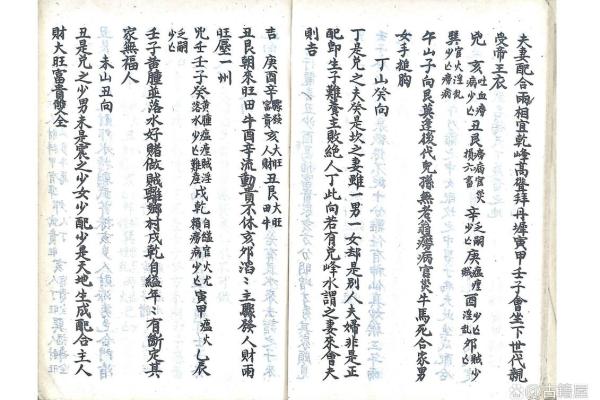 夫妻配合兩相宜乾峰高聳拜丹墀寅甲壬子會坐下世代親
受帝王衣
兇 亥吐血癆少亡 丑艮癆病官災損六畜 辛乏嗣少亡 庚瘟㾮賊 酉少亡淫乱 卯賊少亡
巽官火淫乱少亡癆病
午山子向艮莫逢後代兒孫無老翁癆病官災牛馬死合家男
女手搥胸
丁山癸向
丁是兌之夫癸是坎之妻雖一男一女却是別人夫婦非是正
配即生子難養主敗絶人丁此向若有兌峰水謂之妻來會夫
則吉
吉 庚酉辛縣錢富貴 亥大旺人財 丑艮大旺田牛
丑艮朝來旺田牛酉辛流動貴不休亥邜滔〻主驟發人財兩
旺壓一州
兇壬壬子癸黃腫瘟㾮賊淫落水少亡难產 戌乾自縊官火尤獨癆病少亡 寅甲瘟火 乙辰
乏嗣少亡
壬子黃腫並落水好賭做賊離鄉村戌乾自縊年〻有斷定其
家無福人
丑是 未山丑向
丑是兌之少男未是震之少女少配少是天地生成配合主人
財大旺富貴雙全
古籍屋